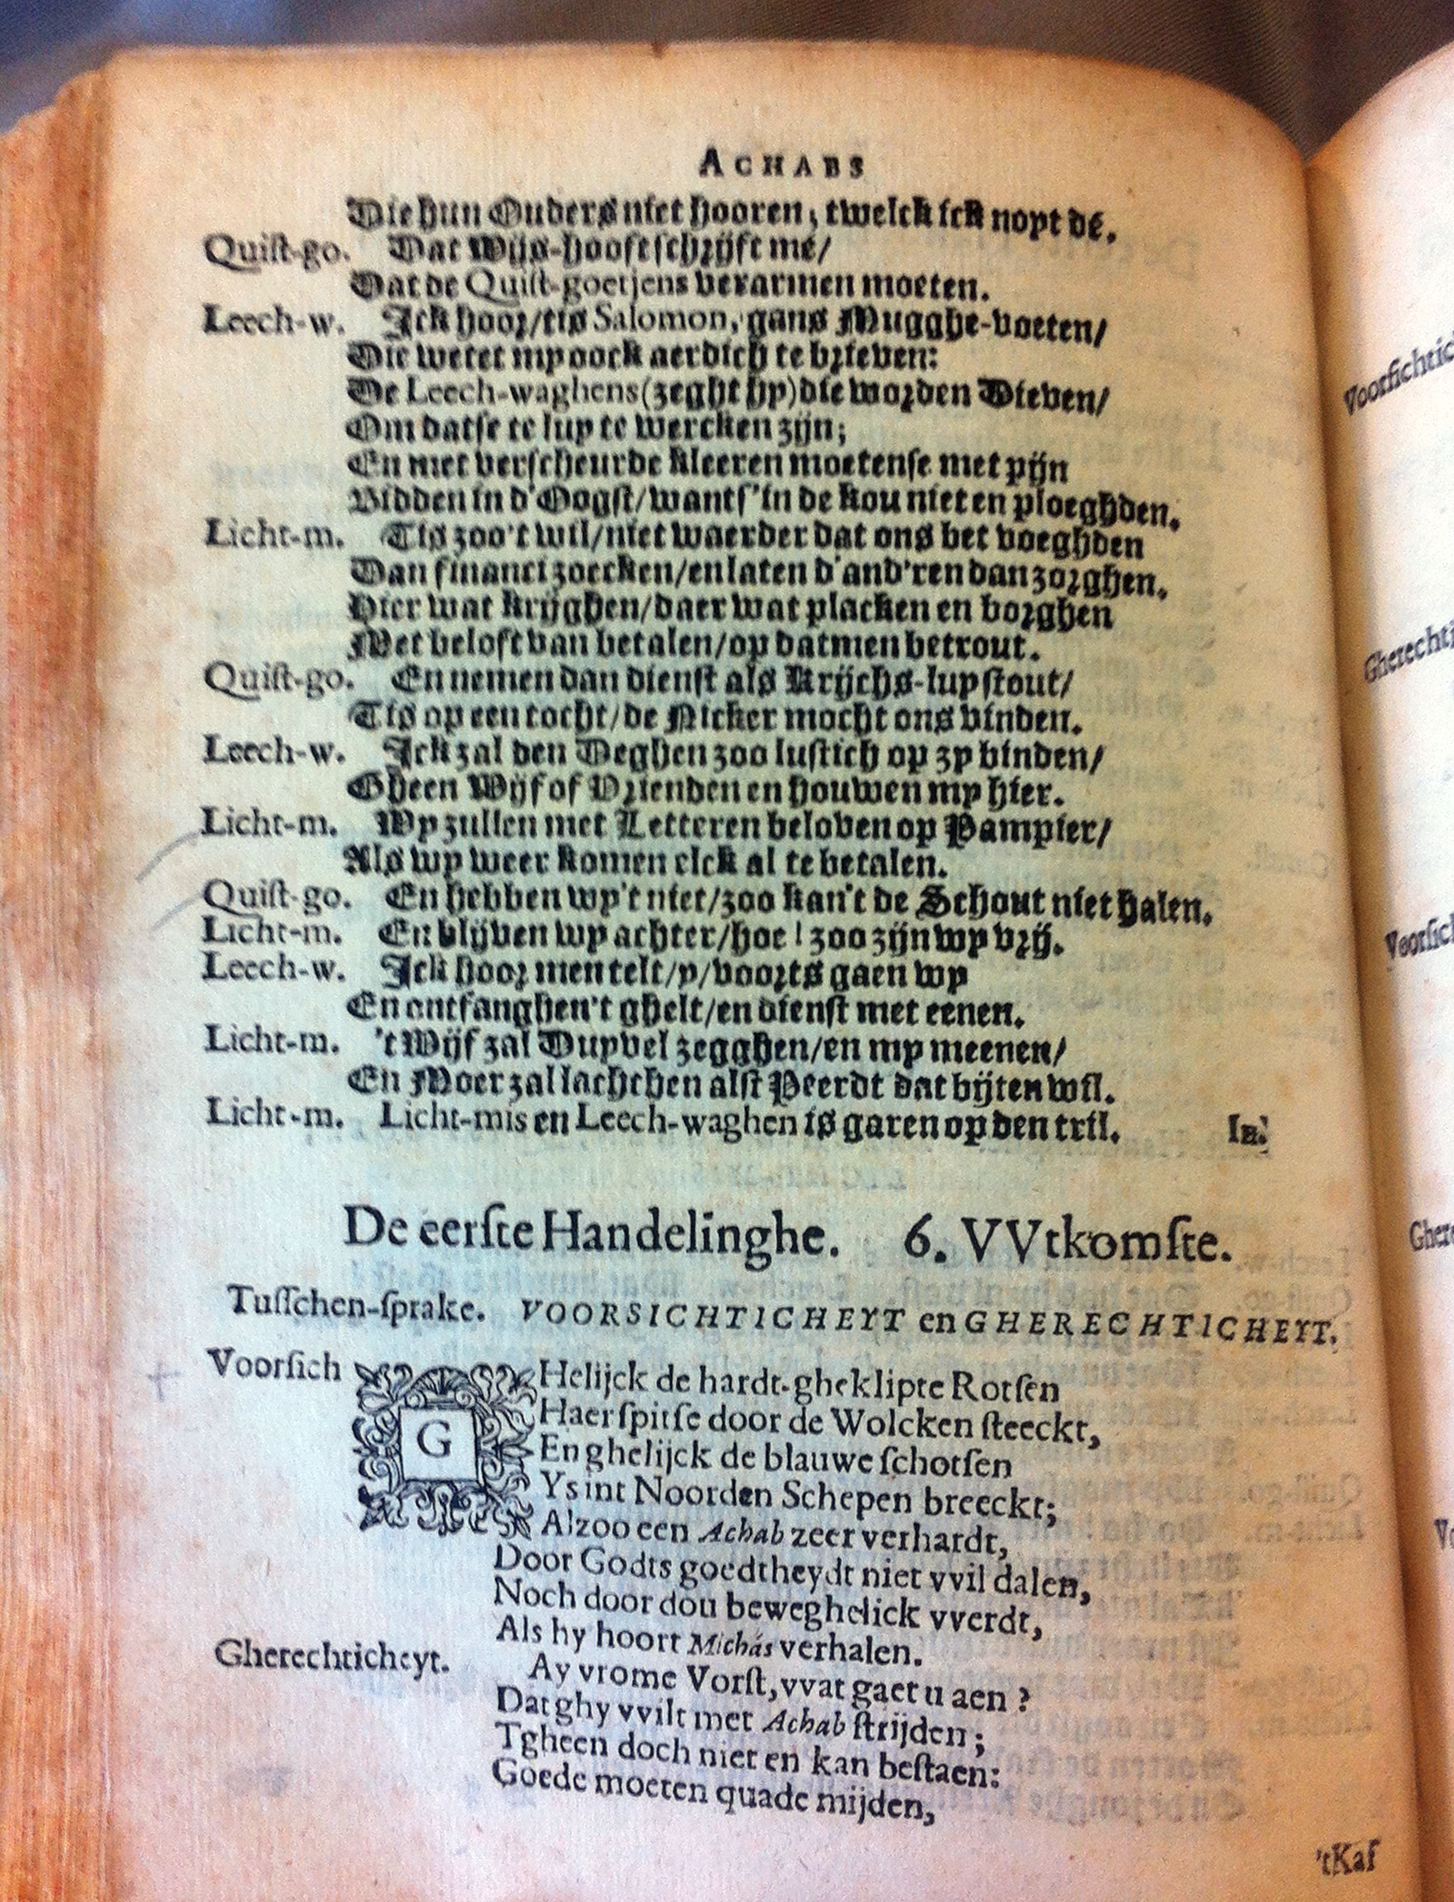 ACHABS
Die hun Ouders niet hooren, twelck ick nopt dé.
Quiſt-go. Dat Wijs-hooft ſchrijft mé/
Dat de Quiſt-goetjens verarmen moeten.
Leech-w. Ick hoor/tis Salomon, gans Mugghe-voeten/
Die wetet my oock aerdich te brieven:
De Leech-waghens (zeght hy) die worden Dieven/
Om datſe te luy te wercken zijn;
En met verſcheurde kleeren moetenſe met pijn
Bidden in d'Oogſt/want ſ'in de kou niet en ploeghden.
Licht-m. Tis zoo't wil/niet waerder dat ons bet voeghden
Dan financi zoecken/en laten d'and'ren dan zorghen.
Hier wat krijghen/daer wat placken en borghen
Met beloft van betalen/op datmen betrout.
Quiſt-go. En nemen dan dienſt als Krijchs-luy ſtout/
Tis op een tocht/de Nicker mocht ons binden.
Leech-w. Ick zal den Deghen zoo luſtich op zy binden/
Gheen Wijf of Vrienden en houwen my hier.
Licht-m. Wy zullen met Letteren beloven op Pampier/
Als wy weer komen elck al te betalen.
Quiſt-go. En hebben wy't niet/zoo kan't de Schout niet halen.
Licht-m. En blijven wy achter/hoe! zoo zijn wy vrij.
Leech-w. Ick hoor men telt/y/voorts gaen wy
En ontfanghen't ghelt/en dienſt met eenen.
Licht-m. 't Wijf zal Duyvel zegghen/en my meenen/
En Moer zal lachchen alſt Peerdt dat bijten wil.
Licht-m. Licht-mis en Leech-waghen is garen op den tril. In.
De eerſte Handelinghe. 6. VVtkomſte.
Tuſſchen-ſprake. VOORSICHTICHEYT en GHERECHTICHEYT.
Voorſich GHelijck de hardt-gheklipte Rotſen
Haer ſpitſe door de Wolcken ſteeckt,
En ghelijck de blauwe ſchotſen
Ys int Noorden Schepen breeckt;
Alzoo een Achab zeer verhardt,
Door Godts goedtheydt niet vvil dalen,
Noch door dou beweghelick vverdt,
Als hy hoort Michás verhalen.
Gherechticheyt. Ay vrome Vorſt, vvat gaet u aen?
Dat ghy vvilt met Achab ſtrijden;
Tgheen doch niet en kan beſtaen:
Goede moeten quade mijden,
'tKaf
Voorſichtic
Gherechti
Voorſich
Ghere
Vo